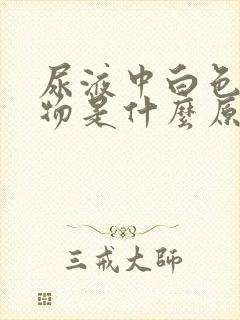 尿液中白色
物是什麼原
三戒大師